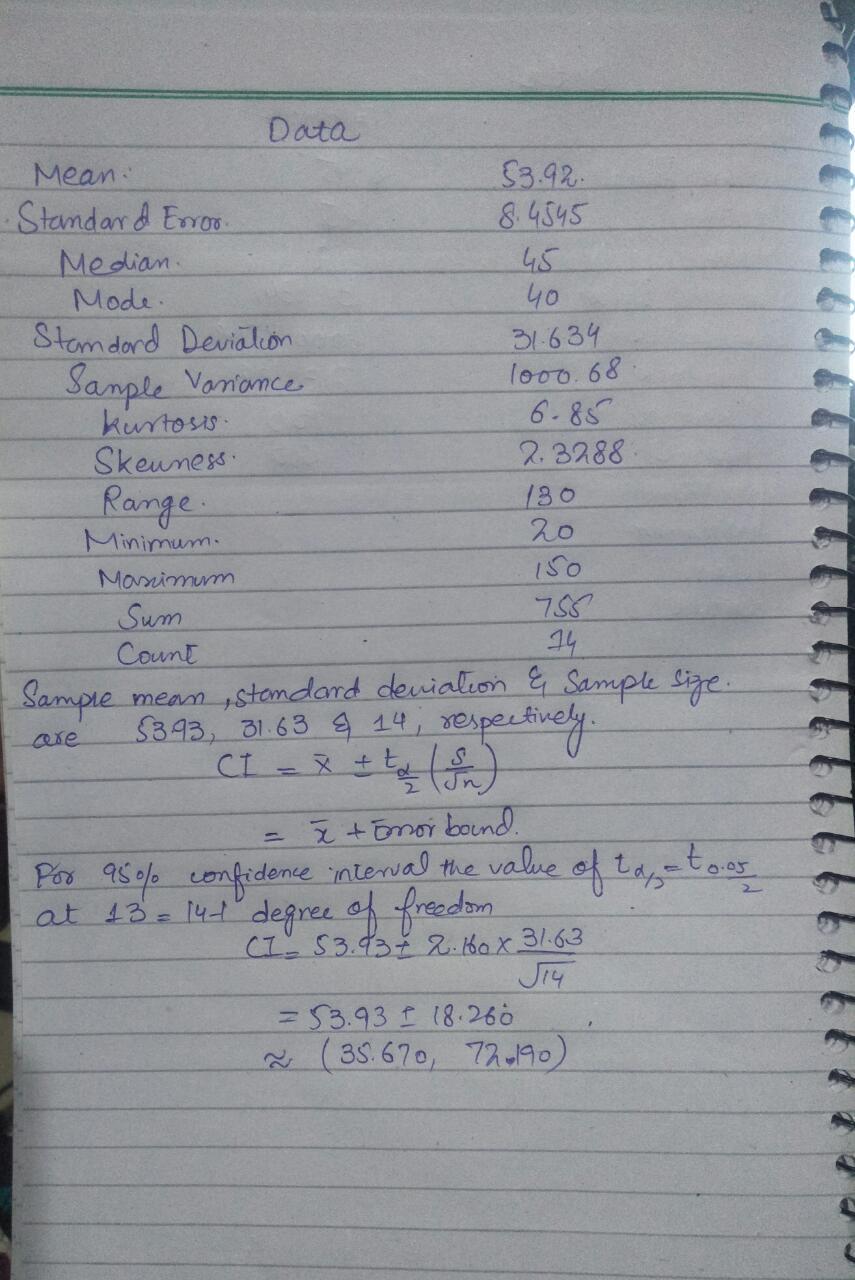 Data
Mean. 53.92.
Standard Error. 8.4545
Median. 45
Mode. 40
Standard Deviation 31.634
Sample Variance 1000.68
Kurtosis. 6.85
Skewness. 2.3288
Range. 130
Minimum. 20
Maximum 150
Sum 755
Count 14
Sample mean, standard deviation & Sample size.
are 53.93, 31.63 & 14, respectively.
CI = x̄ ± t_{α/2} (s/√n)
= x̄ + Error bound.
For 95% confidence interval the value of t_{α/2} = t_{0.05/2}
at 13 = 14-1 degree of freedom
CI = 53.93 ± 2.160 × 31.63/√14
= 53.93 ± 18.260
≈ (35.670, 72.190)